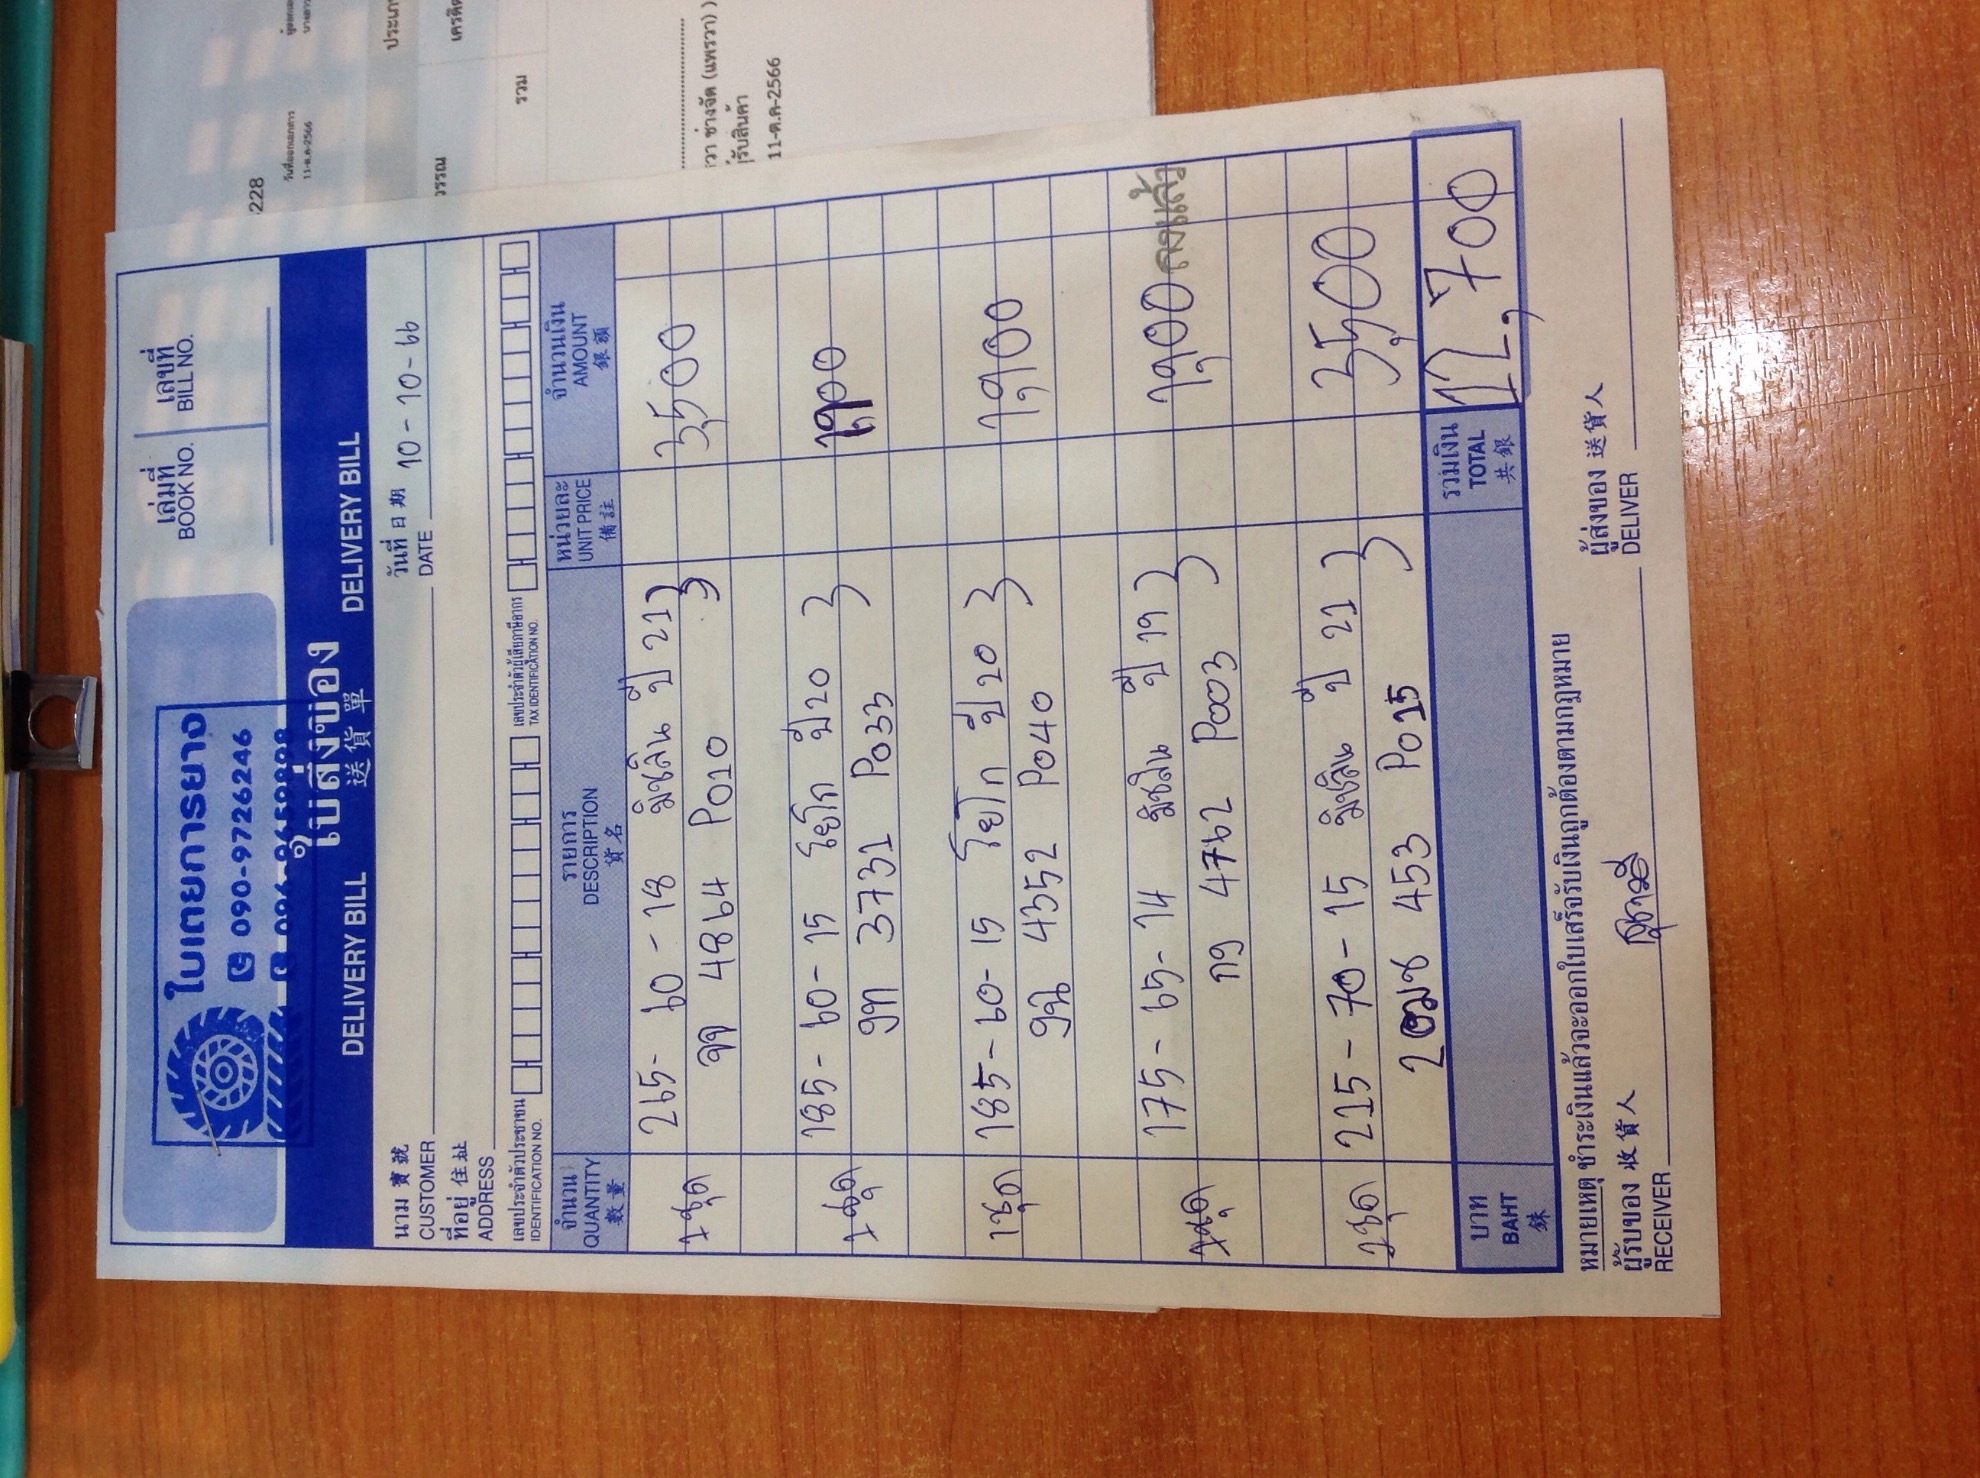 ใบเตยการยาง
090-9726246
เล่มที่
BOOK NO.
เลขที่
BILL NO.
ใบส่งของ
DELIVERY BILL 送貨單 DELIVERY BILL
นาม 寶號
CUSTOMER
วันที่ 日期 10-10-66
DATE
ที่อยู่ 住址
ADDRESS
เลขประจำตัวประชาชน
IDENTIFICATION NO.
เลขประจำตัวผู้เสียภาษีอากร
TAX IDENTIFICATION NO.
จำนวน รายการ หน่วยละ จำนวนเงิน
QUANTITY DESCRIPTION UNIT PRICE AMOUNT
數量 貨名 備註 銀額
1ชุด 265-60-18 มิชลิน ปี 21 3,500
4864 P010
1ชุด 185-60-15 โยโก ปี 20 1,900
3731 P033
1ชุด 185-60-15 โยโก ปี 20 1,900
4352 P040
1ชุด 175-65-14 มิชลิน ปี 19 1,900 ลงแล้ว
กจ 4762 P003
1ชุด 215-70-15 มิชลิน ปี 21 3,500
2ฒช 453 P015
บาท รวมเงิน 12,700
BAHT TOTAL
銖 共銀
หมายเหตุ ชำระเงินแล้วจะออกใบเสร็จรับเงินถูกต้องตามกฎหมาย
ผู้รับของ 收貨人 ผู้ส่งของ 送貨人
RECEIVER DELIVER
228
วันที่ออกเอกสาร
11-ต.ค-2566
รวม
วา ช่างจัด (แพรวา) )
รับสินค้า
11-ต.ค-2566